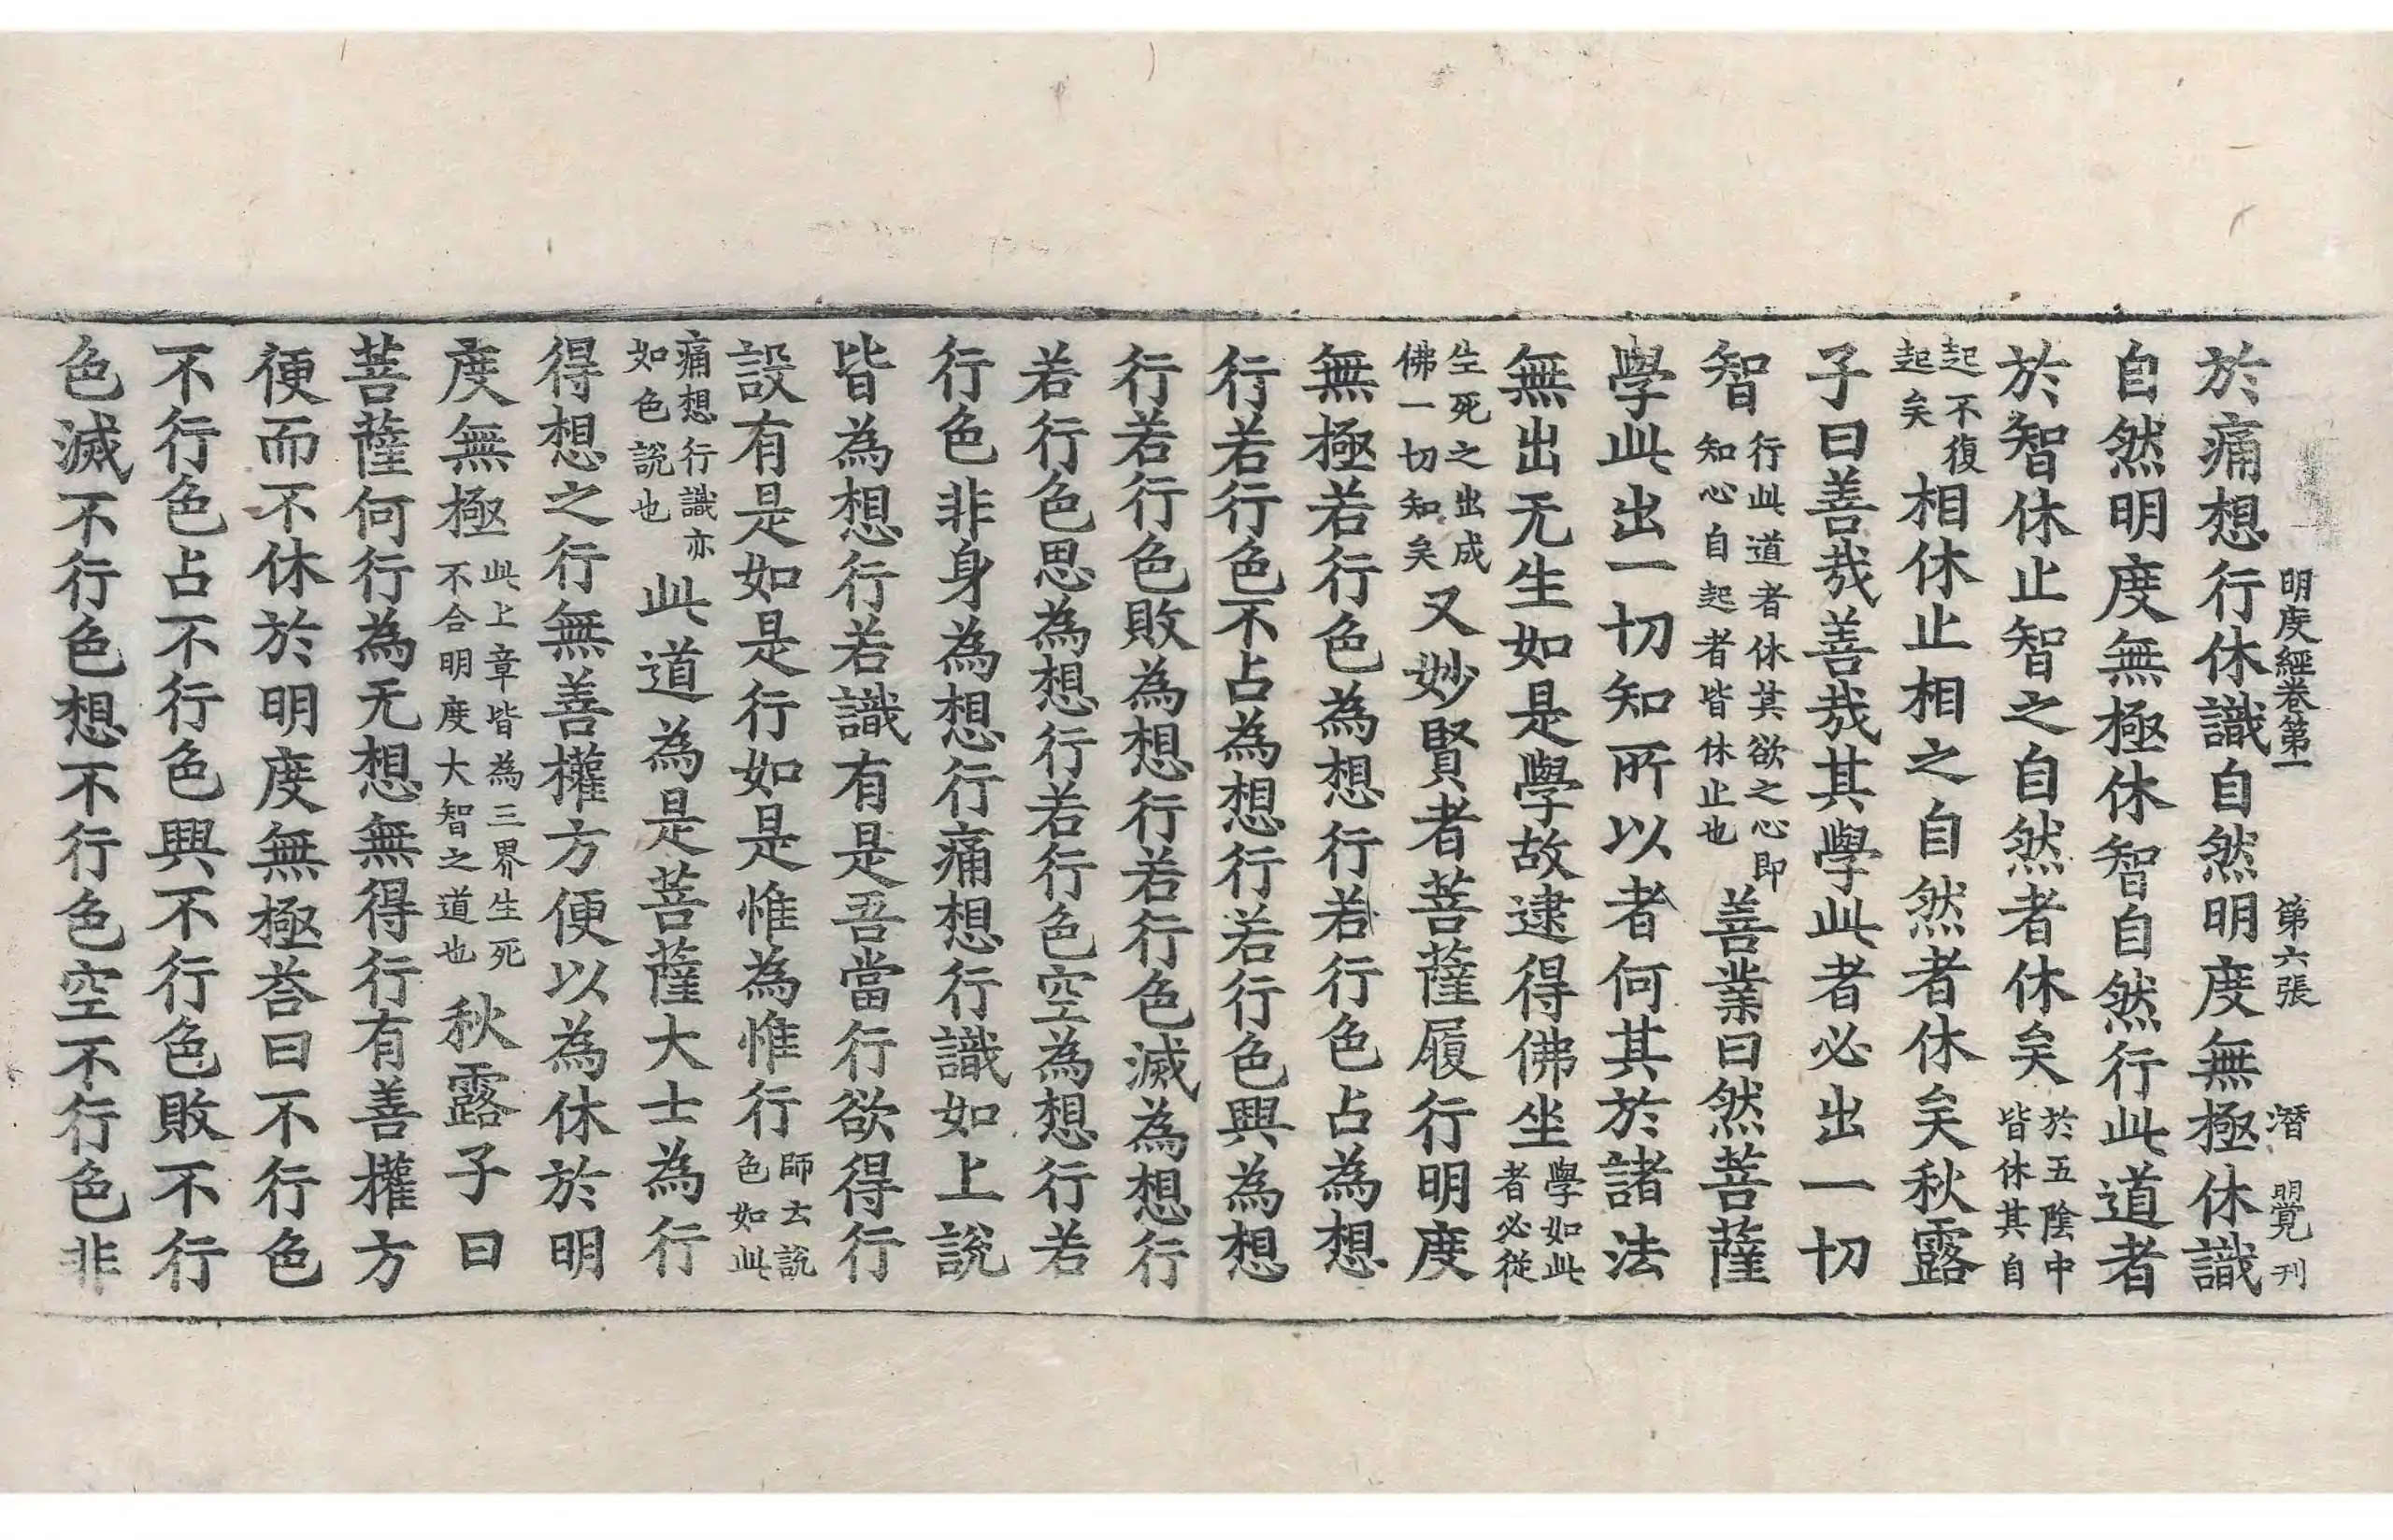 明度經卷第一 第六張 潛 明覺刊
於痛想行休識自然明度無極休識
自然明度無極休智自然行此道者
於智休止智之自然者休矣於五陰中皆休其自
起不復起矣相休止相之自然者休矣秋露
子曰善哉善哉其學此者必出一切
智行此道者休其欲之心即知心自起者皆休止也善業曰然菩薩
學此出一切知所以者何其於諸法
無出无生如是學故逮得佛坐學如此者必從
生死之出成佛一切知矣又妙賢者菩薩履行明度
無極若行色為想行若行色占為想
行若行色不占為想行若行色興為想
行若行色敗為想行若行色滅為想行
若行色思為想行若行色空為想行若
行色非身為想行痛想行識如上說
皆為想行若識有是吾當行欲得行
設有是如是行如是惟為惟行師去說色如此
痛想行識亦如色說也此道為是菩薩大士為行
得想之行無善權方便以為休於明
度無極此上章皆為三界生死不合明度大智之道也秋露子曰
菩薩何行為无想無得行有善權方
便而不休於明度無極荅曰不行色
不行色占不行色興不行色敗不行
色滅不行色想不行色空不行色非